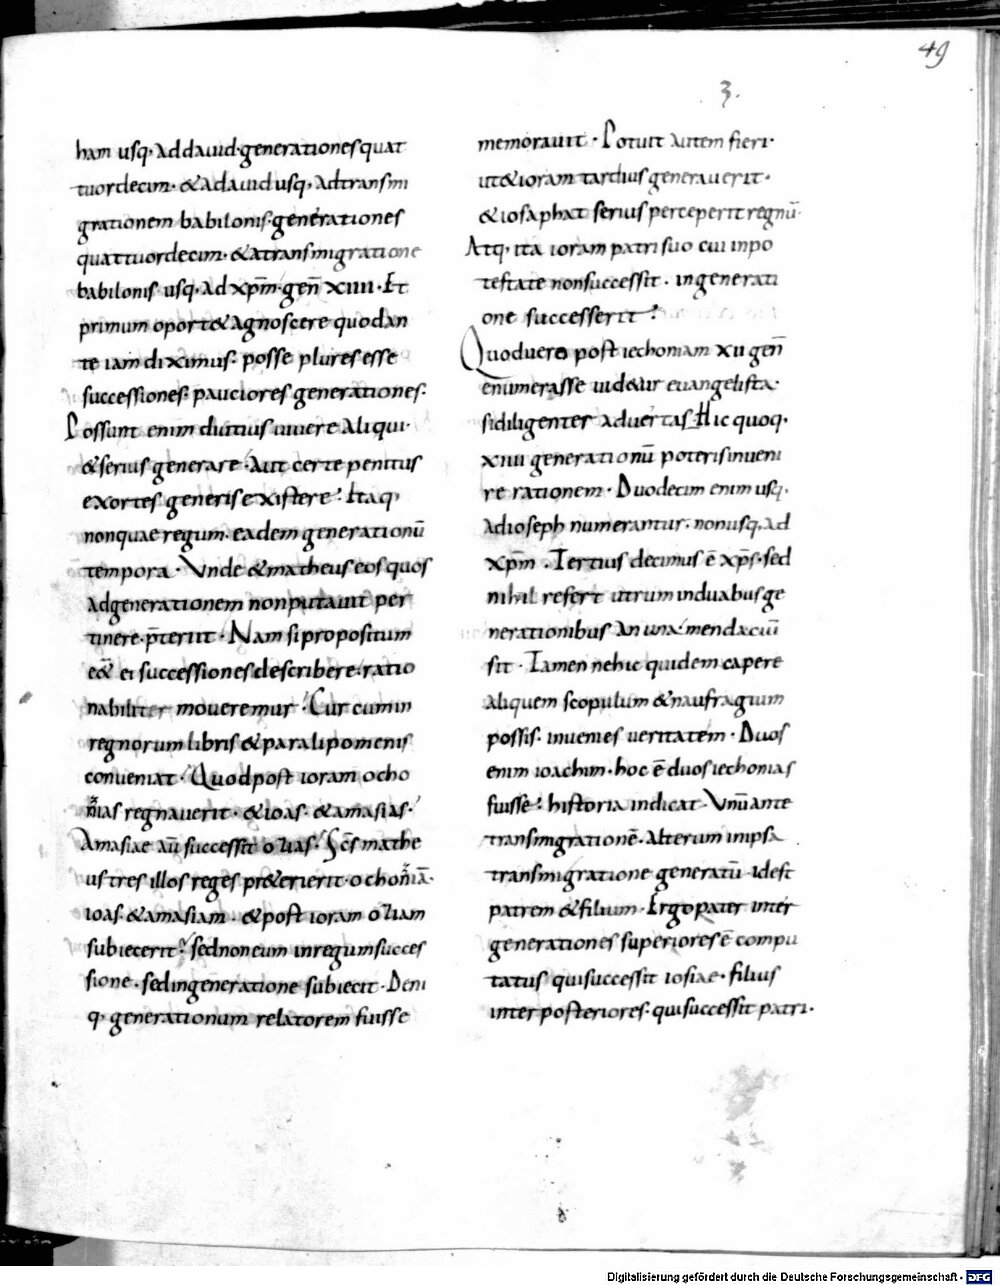 49
3.
ham usq· ad dauid· generationes quat
tuordecim· & a dauid usq· ad transmi
grationem babilonis· generationes
quattuordecim· & a transmigratione
babilonis usq· ad xp̄m· gen̄ xiiii· Et
primum oport& agnoscere quod an
te iam diximus· posse plures esse
successiones· pauciores generationes·
Possunt enim diutius uiuere aliqui·
& serius generare· Aut certe penitus
exortes generis existere· Itaq·
non quae regum· eadem generationū
tempora· Vnde & matheus eos quos
ad generationem non putauit per
tinere· p̄teriit· Nam si propositum
e& ei successiones describere· ratio
nabiliter moueremur· Cur cum in
regnorum libris & paralipomenis
conueniat· Quod post ioram ocho
zias regnauerit· & ioas· & amasias·
Amasiae aū successit ozias· Sc̄s mathe
us tres illos reges pr&erierit· ochoziā·
ioas· & amasiam· & post ioram oziam
subiecerit· sed non eum in regum succes
sione· sed in generatione subiecit· Deni
q· generationum relatorem fuisse
memorauit· Potuit autem fieri·
ut & ioram tardius generauerit·
& iosaphat serius perceperit regnū·
Atq· ita ioram patri suo cui in po
testate non successit· in generati
one successerit·
Quod uero post iechoniam xii gen̄
enumerasse uid&ur euangelista·
si diligenter aduertas· Hic quoq·
xiiii generationū poteris inueni
re rationem· Duodecim enim usq·
ad ioseph numerantur· non usq· ad
xp̄m· Tertius decimus ē xp̄s· sed
nihil refert utrum in duabus ge
nerationibus an una· mendaciū
sit· Tamen ne hic quidem capere
aliquem scopulum & naufragium
possis· inuenies ueritatem· Duos
enim ioachim· hoc ē duos iechonias
fuisse· historia indicat· Vnū ante
transmigrationē· alterum in ipsa
transmigratione generatū· id est
patrem & filium· Ergo pater inter
generationes superiores ē compu
tatus qui successit iosiae· filius
inter posteriores· qui successit patri·
Digitalisierung gefördert durch die Deutsche Forschungsgemeinschaft - DFG